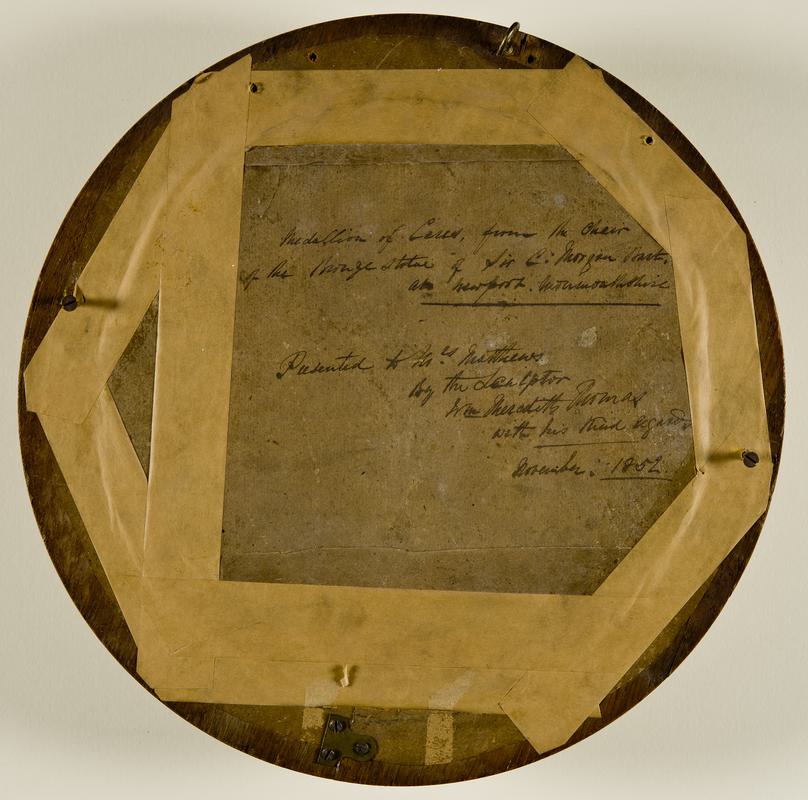 Medallion of Ceres, from the Chair
of the Bronze Statue of Sir C: Morgan Bart.
at Newport. Monmouthshire
Presented to Mrs Matthews
By the Sculptor
Wm Meredith Thomas
with his kind regards
November: 1852.